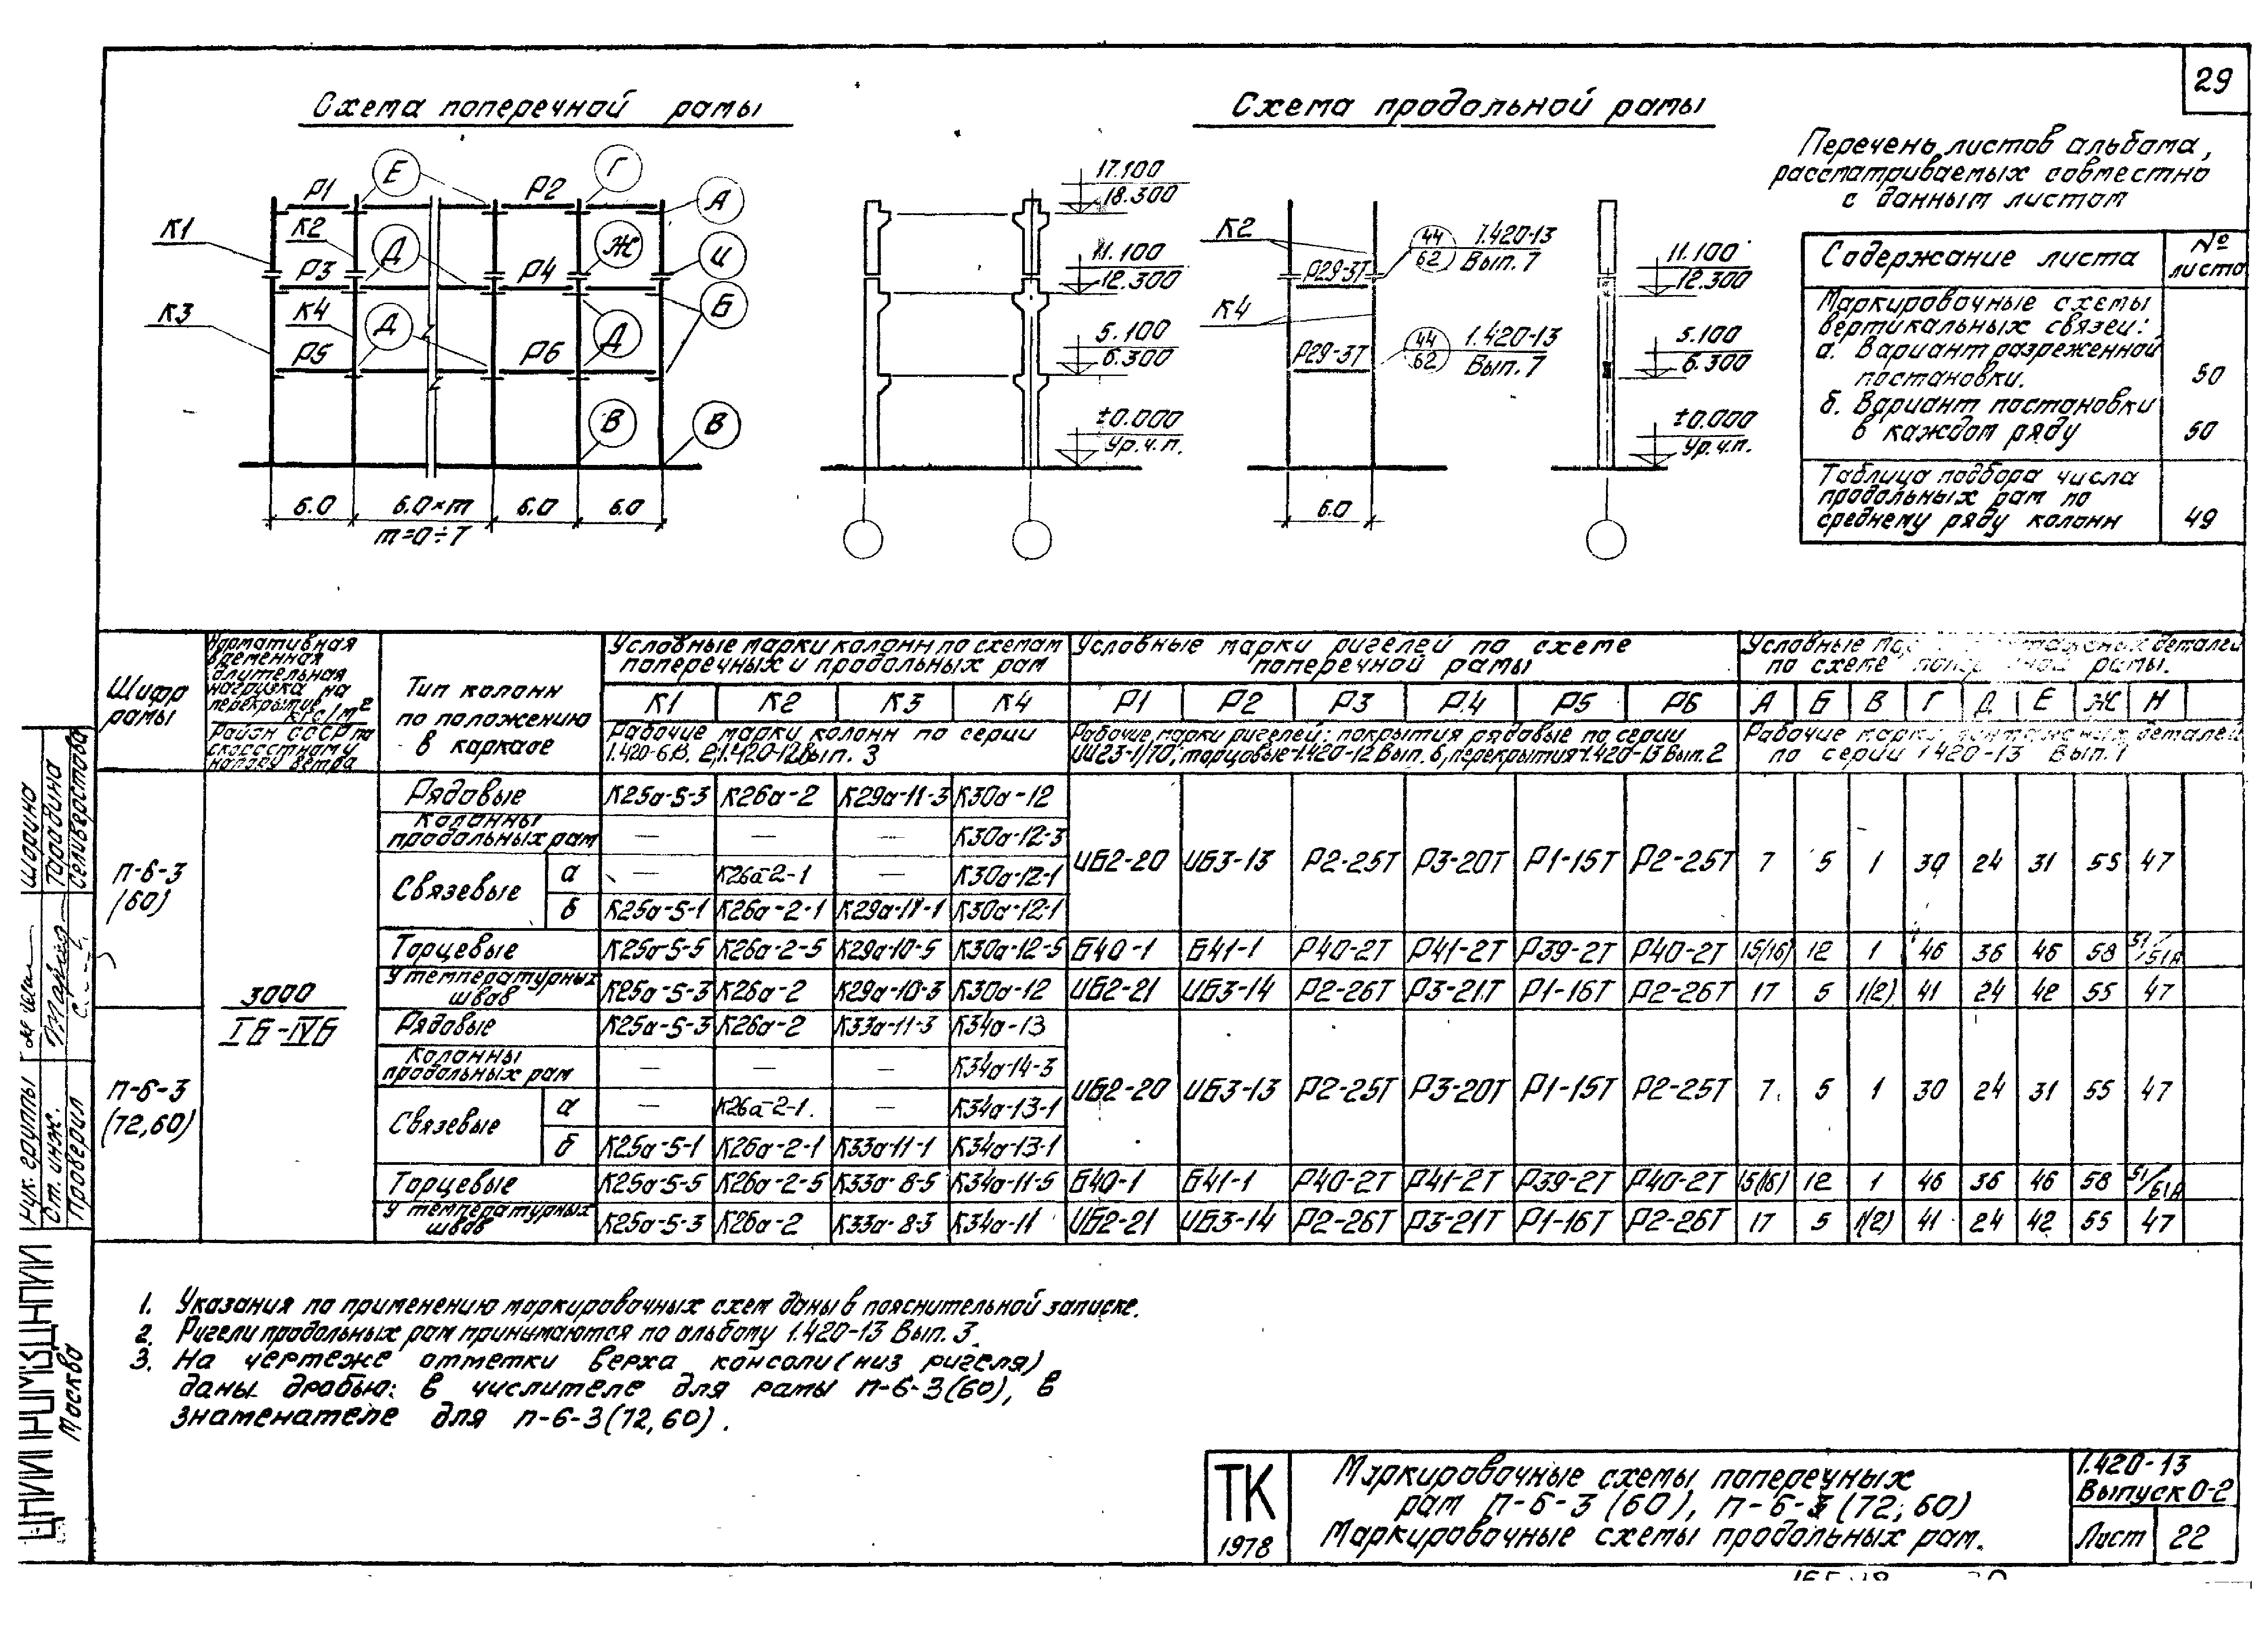 29
Схема поперечной рамы
Схема продольной рамы
Перечень листов альбома,
рассматриваемых совместно
с данным листом
Содержание листа № листа
Маркировочные схемы
вертикальных связей:
а. Вариант разреженной
постановки. 50
б. Вариант постановки
в каждом ряду 50
Таблица подбора числа
продольных рам по
среднему ряду колонн 49
Р1 Е Р2 Г А
К1 К2 Д Ж И
Р3 Р4
К3 К4 Д Д Б
Р5 Р6
В В
6.0 6.0×m 6.0 6.0
m=0÷7
17.100
18.300
11.100
12.300
5.100
6.300
±0.000
Ур.ч.п.
К2 44 1.420-13
Р29-3Т 62 Вып. 7
К4
44 1.420-13
Р29-3Т 62 Вып. 7
6.0
11.100
12.300
5.100
6.300
±0.000
Ур.ч.п.
Шифр рамы
Нормативная временная длительная нагрузка на перекрытие кгс/м²
Район СССР по скоростному напору ветра
Тип колонн по положению в каркасе
Условные марки колонн по схемам поперечных и продольных рам
Условные марки ригелей по схеме поперечной рамы
Условные деталей по схеме рамы.
К1 К2 К3 К4 Р1 Р2 Р3 Р4 Р5 Р6 А Б В Г Д Е Ж Н
Рабочие марки колонн по серии
1.420-12 Вып. 3
Рабочие марки ригелей: покрытия рядовые по серии
ИИ23-1/70; торцовые-1.420-12 Вып. 6, перекрытия 1.420-13 Вып. 2
Рабочие марки монтажных деталей
по серии 1.420-13 Вып. 1
П-6-3
(60)
3000
IБ-IVБ
Рядовые К25а-5-3 К26а-2 К29а-11-3 К30а-12
Колонны продольных рам — — — К30а-12-3
Связевые а — К26а-2-1 — К30а-12-1
б К25а-5-1 К26а-2-1 К29а-11-1 К30а-12-1
ИБ2-20 ИБ3-13 Р2-25Т Р3-20Т Р1-15Т Р2-25Т 7 5 1 30 24 31 55 47
Торцевые К25а-5-5 К26а-2-5 К29а-10-5 К30а-12-5 Б40-1 Б41-1 Р40-2Т Р41-2Т Р39-2Т Р40-2Т 15(16) 12 1 46 36 46 58 51/51А
У температурных швов К25а-5-3 К26а-2 К29а-10-3 К30а-12 ИБ2-21 ИБ3-14 Р2-26Т Р3-21Т Р1-16Т Р2-26Т 17 5 1(2) 41 24 42 55 47
П-6-3
(72,60)
Рядовые К25а-5-3 К26а-2 К33а-11-3 К34а-13
Колонны продольных рам — — — К34а-14-3
Связевые а — К26а-2-1 — К34а-13-1
б К25а-5-1 К26а-2-1 К33а-11-1 К34а-13-1
ИБ2-20 ИБ3-13 Р2-25Т Р3-20Т Р1-15Т Р2-25Т 7 5 1 30 24 31 55 47
Торцевые К25а-5-5 К26а-2-5 К33а-8-5 К34а-11-5 Б40-1 Б41-1 Р40-2Т Р41-2Т Р39-2Т Р40-2Т 15(16) 12 1 46 36 46 58 51/51А
У температурных швов К25а-5-3 К26а-2 К33а-8-3 К34а-11 ИБ2-21 ИБ3-14 Р2-26Т Р3-21Т Р1-16Т Р2-26Т 17 5 1(2) 41 24 42 55 47
1. Указания по применению маркировочных схем даны в пояснительной записке.
2. Ригели продольных рам принимаются по альбому 1.420-13 Вып. 3.
3. На чертеже отметки верха консоли (низ ригеля)
даны дробью: в числителе для рамы П-6-3(60), в
знаменателе для П-6-3(72,60).
ТК
1978
Маркировочные схемы поперечных
рам П-6-3(60), П-6-3(72;60)
Маркировочные схемы продольных рам.
1.420-13
Выпуск 0-2
Лист 22
Рук. группы Шорина
Ст. инж. Тарадина
Проверил Селиверстова
ЦНИИПРОМЗДАНИЙ
Москва